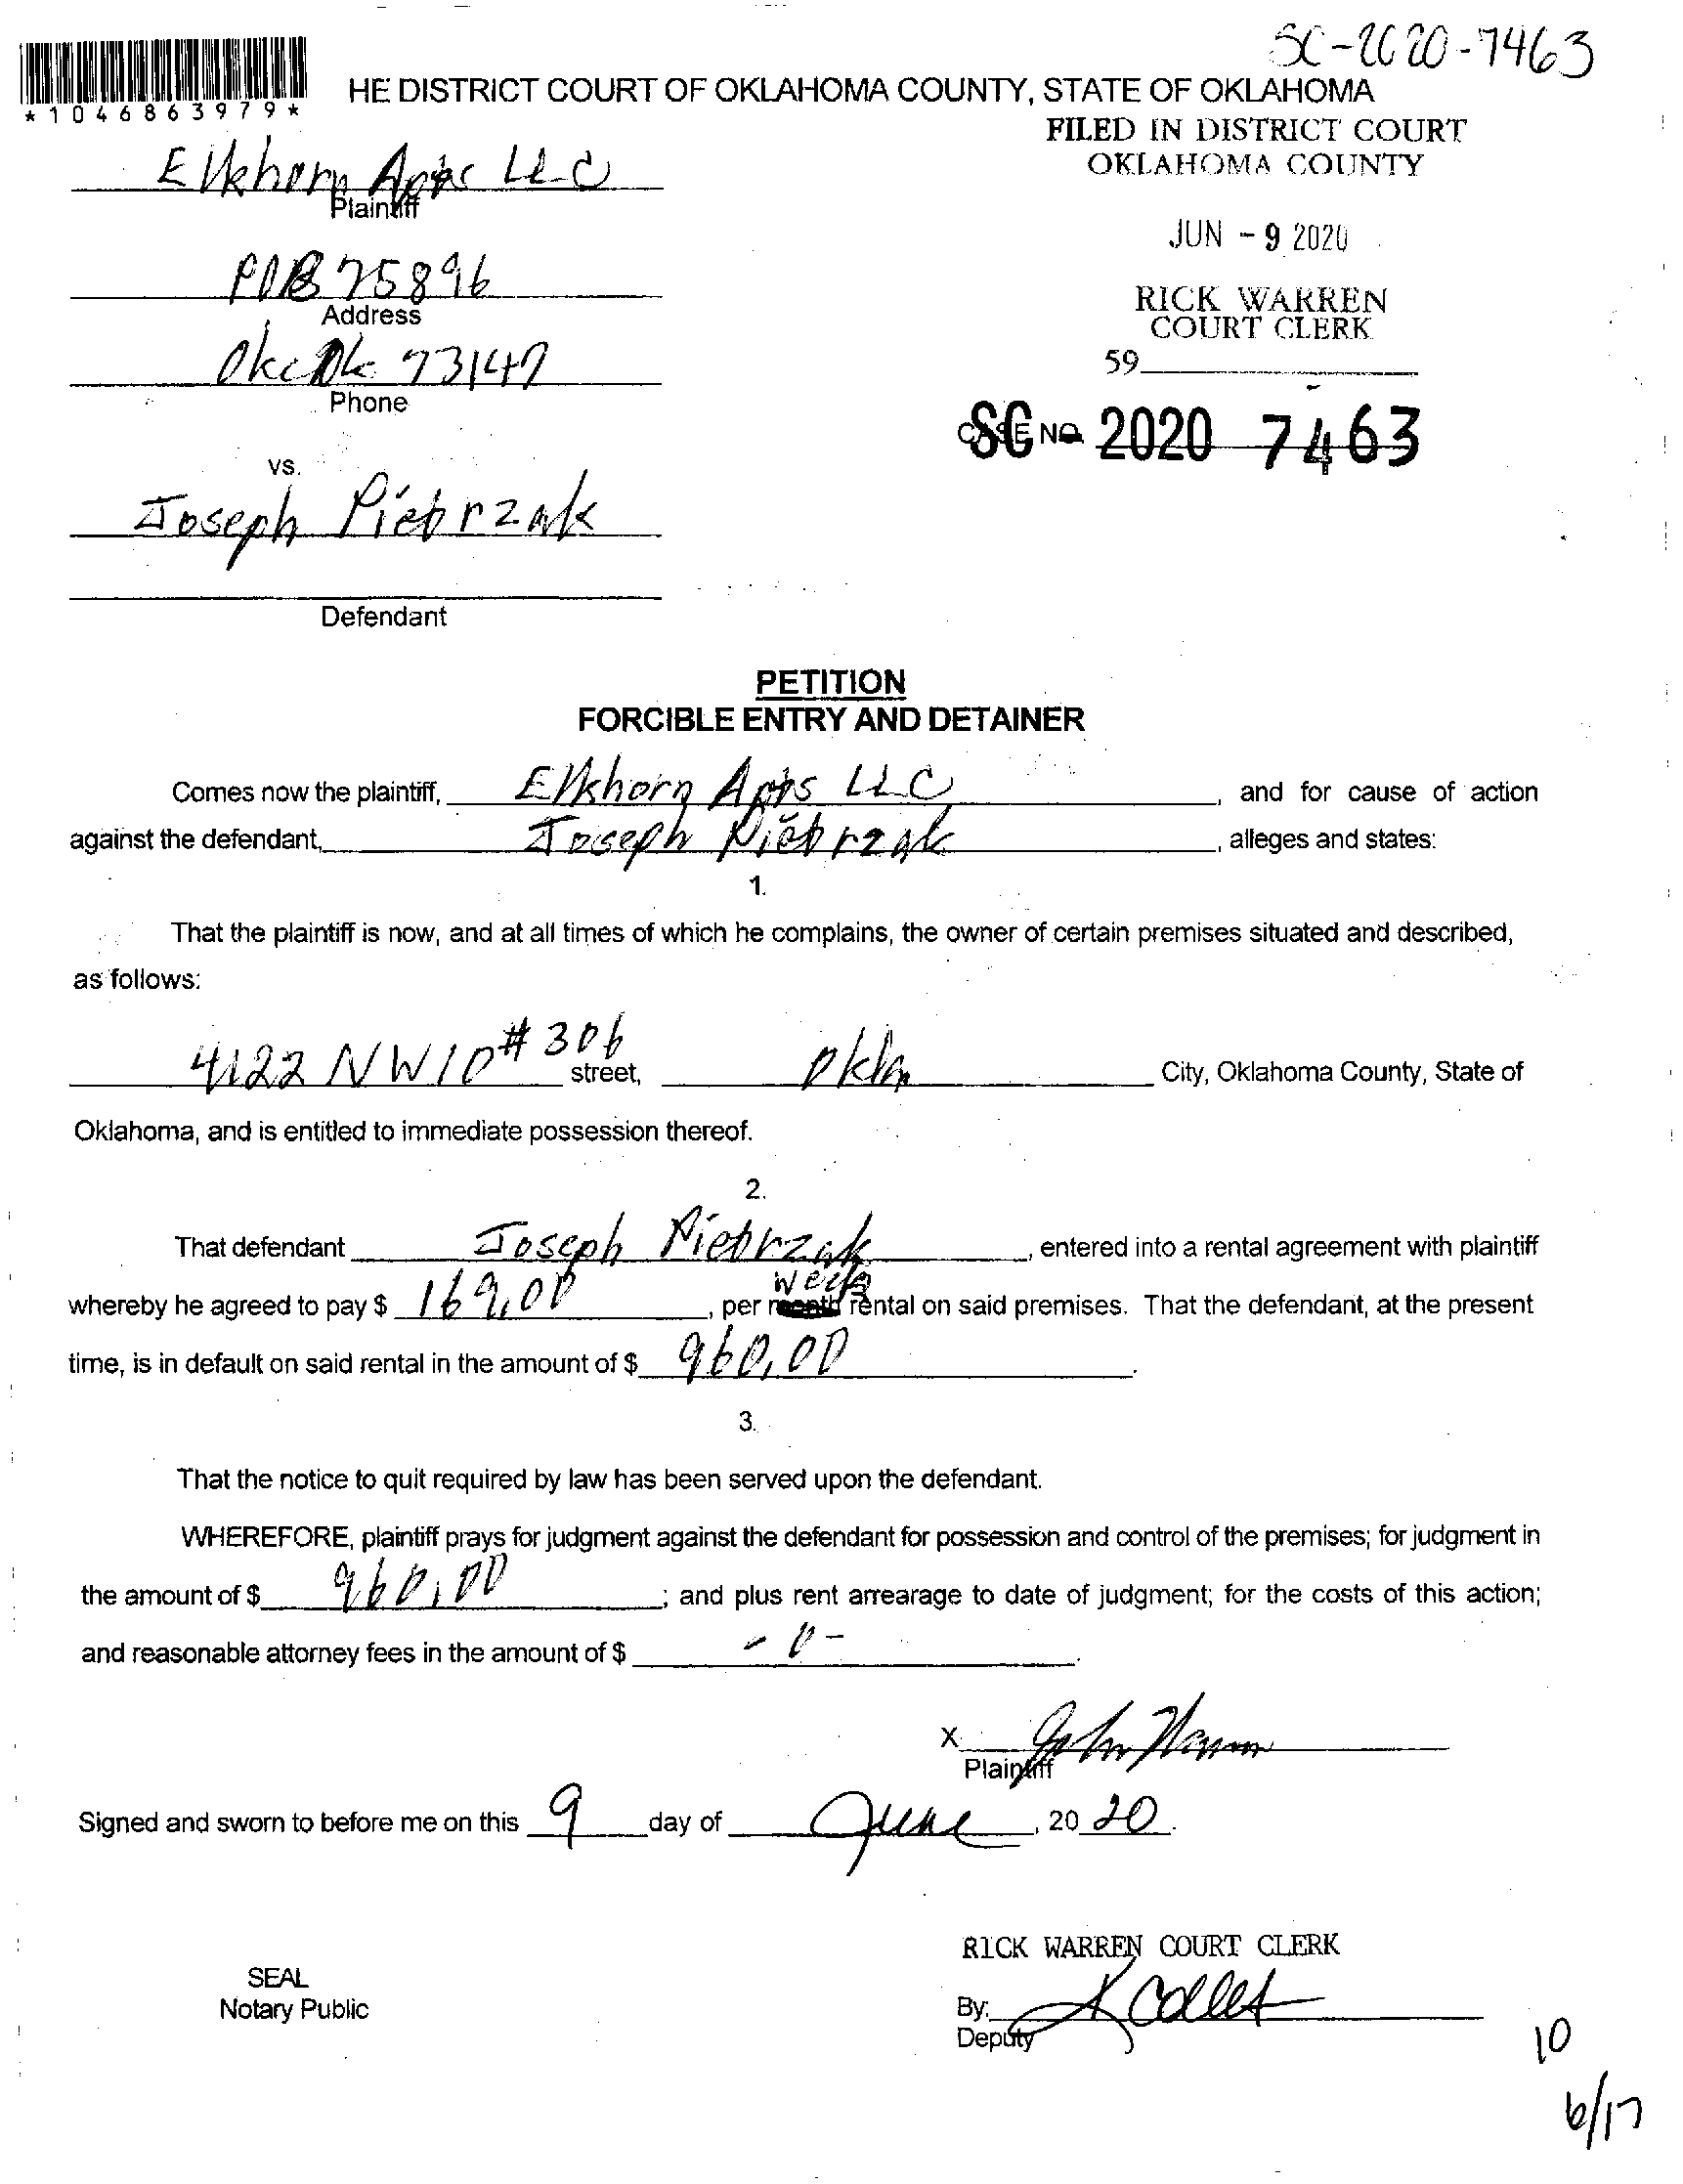 SC-2020-7463
*1046863979*
HE DISTRICT COURT OF OKLAHOMA COUNTY, STATE OF OKLAHOMA
FILED IN DISTRICT COURT
OKLAHOMA COUNTY
Elkhorn Apts LLC
Plaintiff
JUN - 9 2020
POB 75896
Address
RICK WARREN
COURT CLERK
Okc Ok 73147
Phone
59
CASE NO. SC 2020 7463
vs.
Joseph Pietrzak
Defendant
PETITION
FORCIBLE ENTRY AND DETAINER
Comes now the plaintiff, Elkhorn Apts LLC, and for cause of action
against the defendant, Joseph Pietrzak, alleges and states:
1.
That the plaintiff is now, and at all times of which he complains, the owner of certain premises situated and described,
as follows:
4122 NW 10 # 306 street, Okla City, Oklahoma County, State of
Oklahoma, and is entitled to immediate possession thereof.
2.
That defendant Joseph Pietrzak, entered into a rental agreement with plaintiff
week
whereby he agreed to pay $ 169.00, per month rental on said premises. That the defendant, at the present
time, is in default on said rental in the amount of $ 960.00.
3.
That the notice to quit required by law has been served upon the defendant.
WHEREFORE, plaintiff prays for judgment against the defendant for possession and control of the premises; for judgment in
the amount of $ 960.00; and plus rent arrearage to date of judgment; for the costs of this action;
and reasonable attorney fees in the amount of $ -0-.
X John
Plaintiff
Signed and sworn to before me on this 9 day of June, 20 20.
RICK WARREN COURT CLERK
SEAL
Notary Public
By:
Deputy
10
6/17